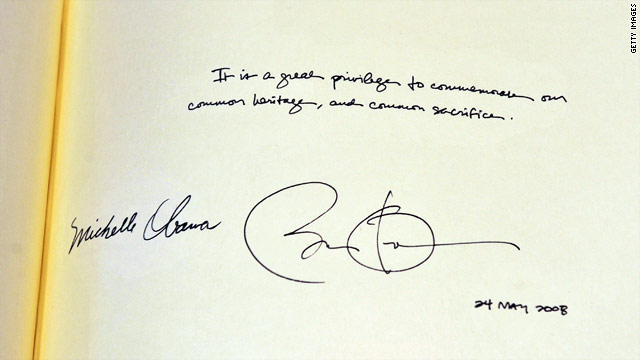 GETTY IMAGES
It is a great privilege to commemorate our
common heritage, and common sacrifice.
Michelle Obama
Barack Obama
24 MAY 2008